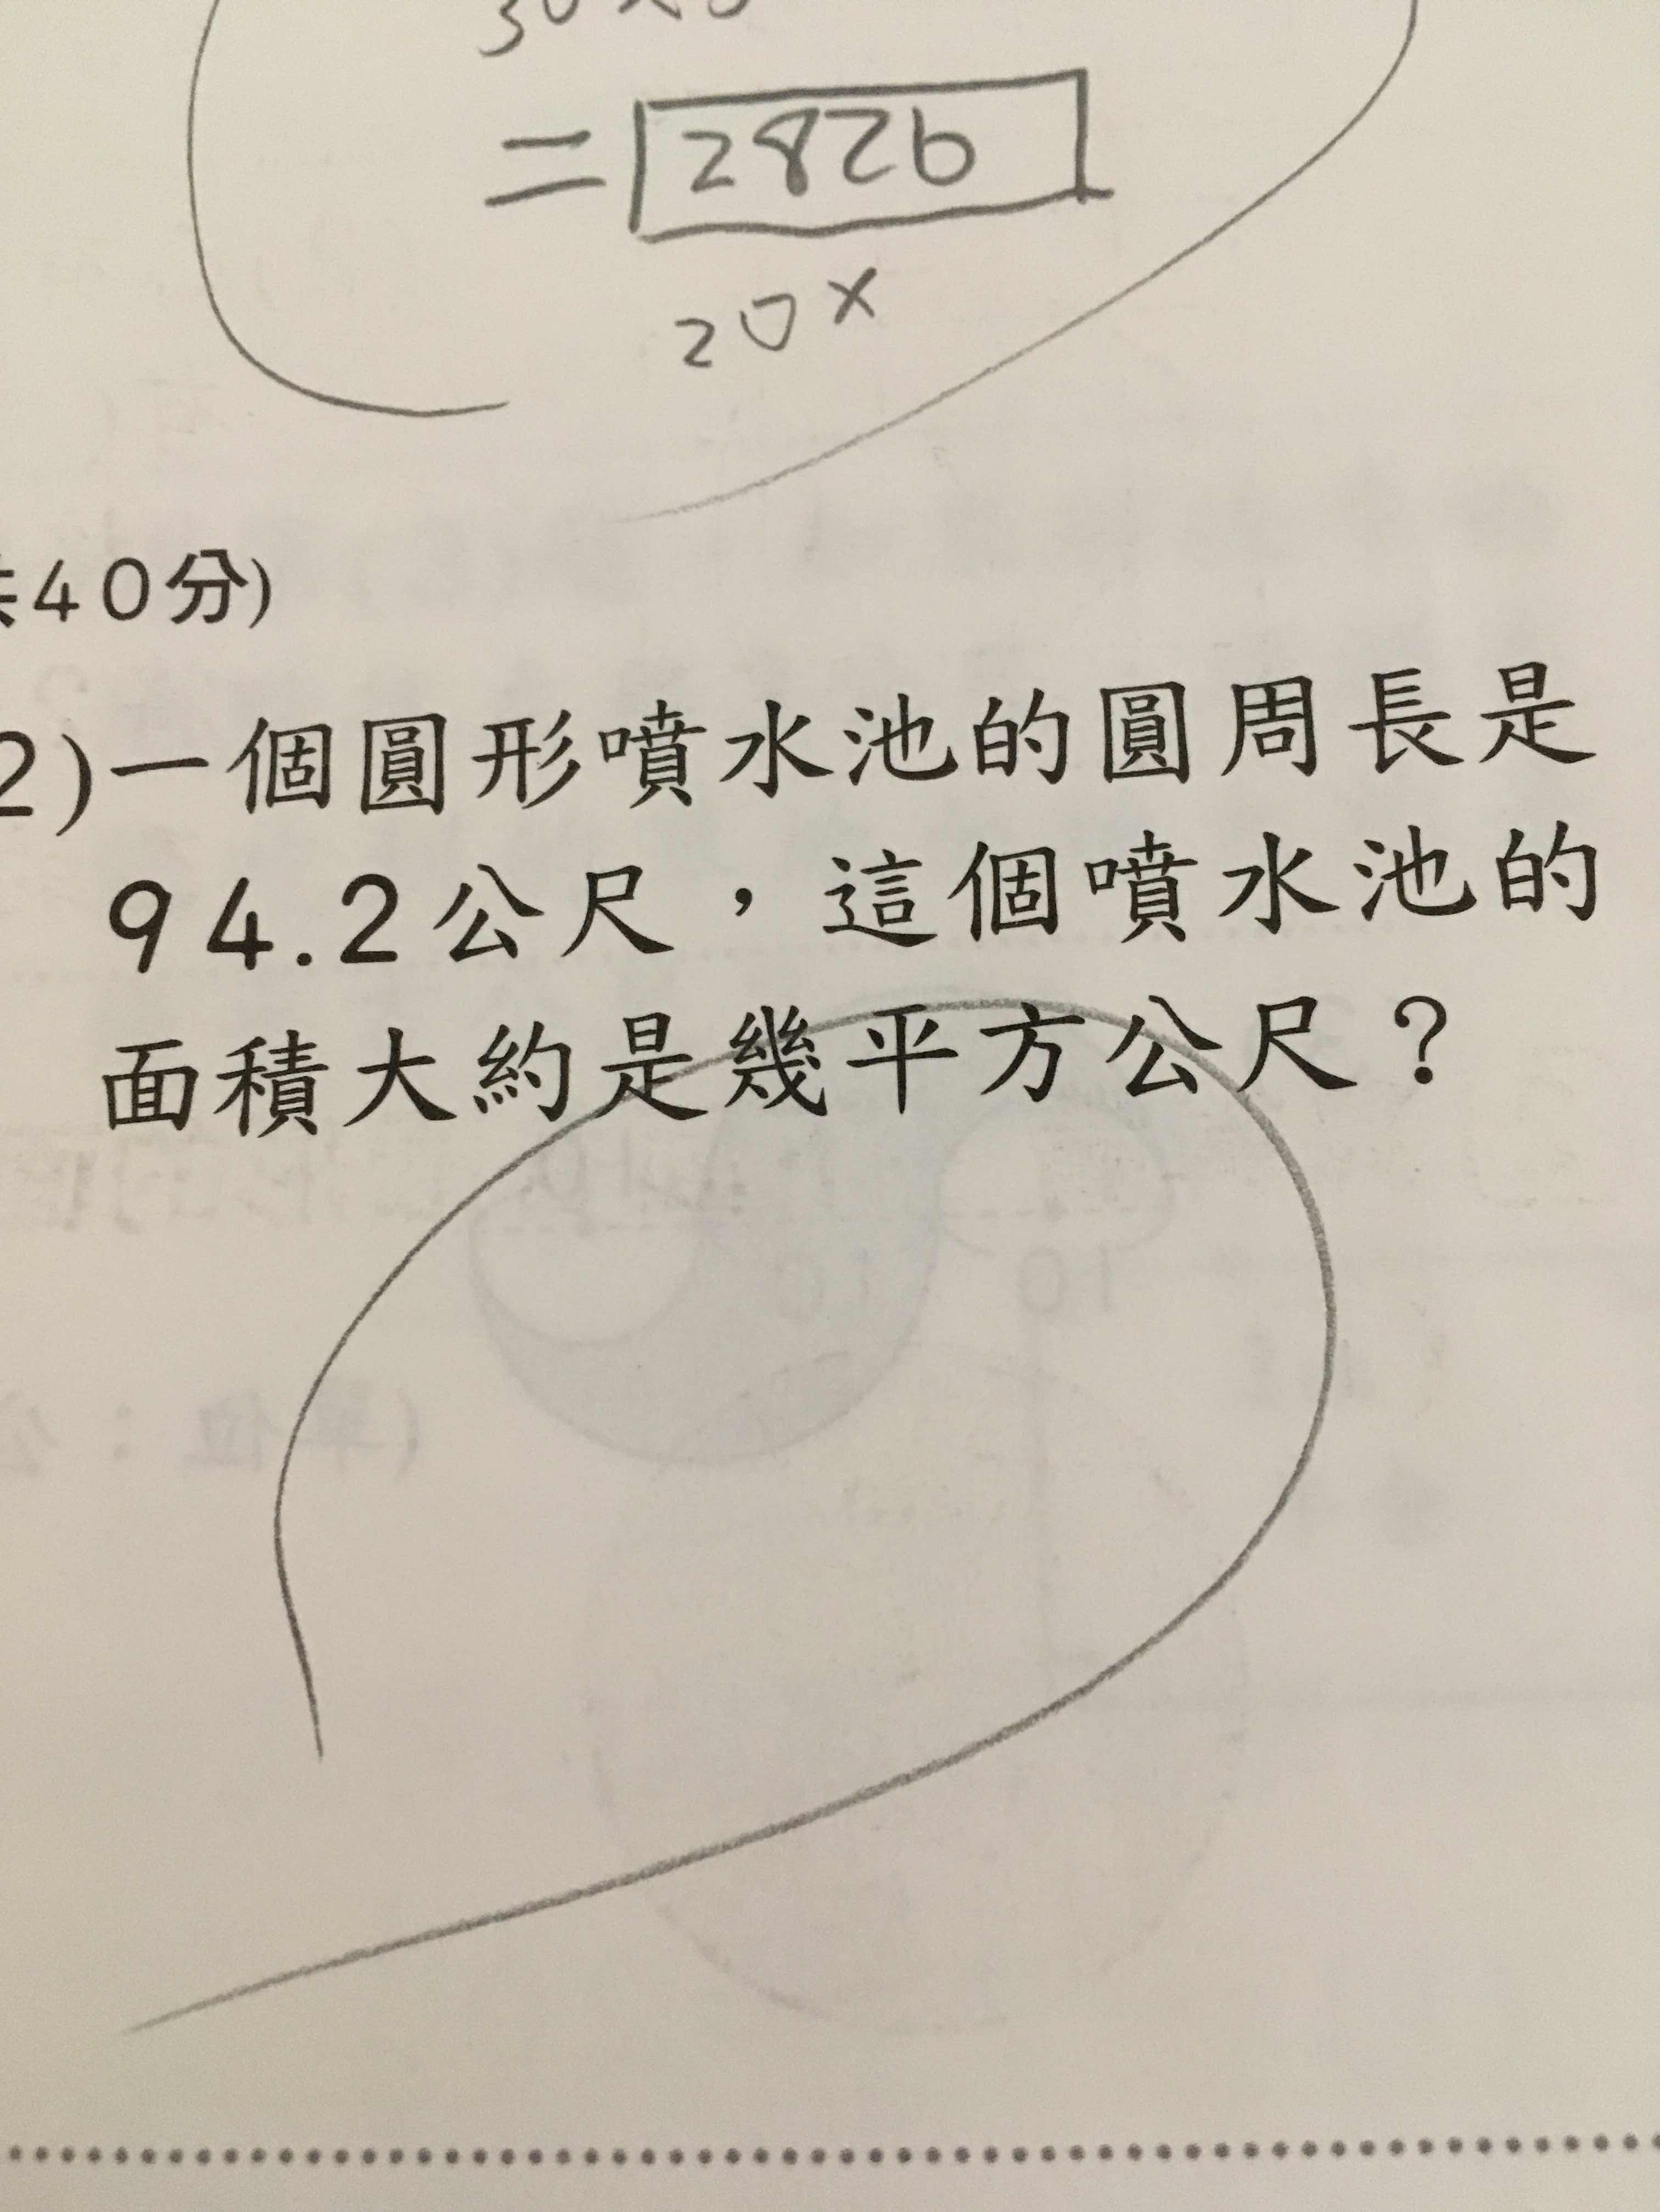 =2826
20x
共40分)
2)一個圓形噴水池的圓周長是
94.2公尺，這個噴水池的
面積大約是幾平方公尺？